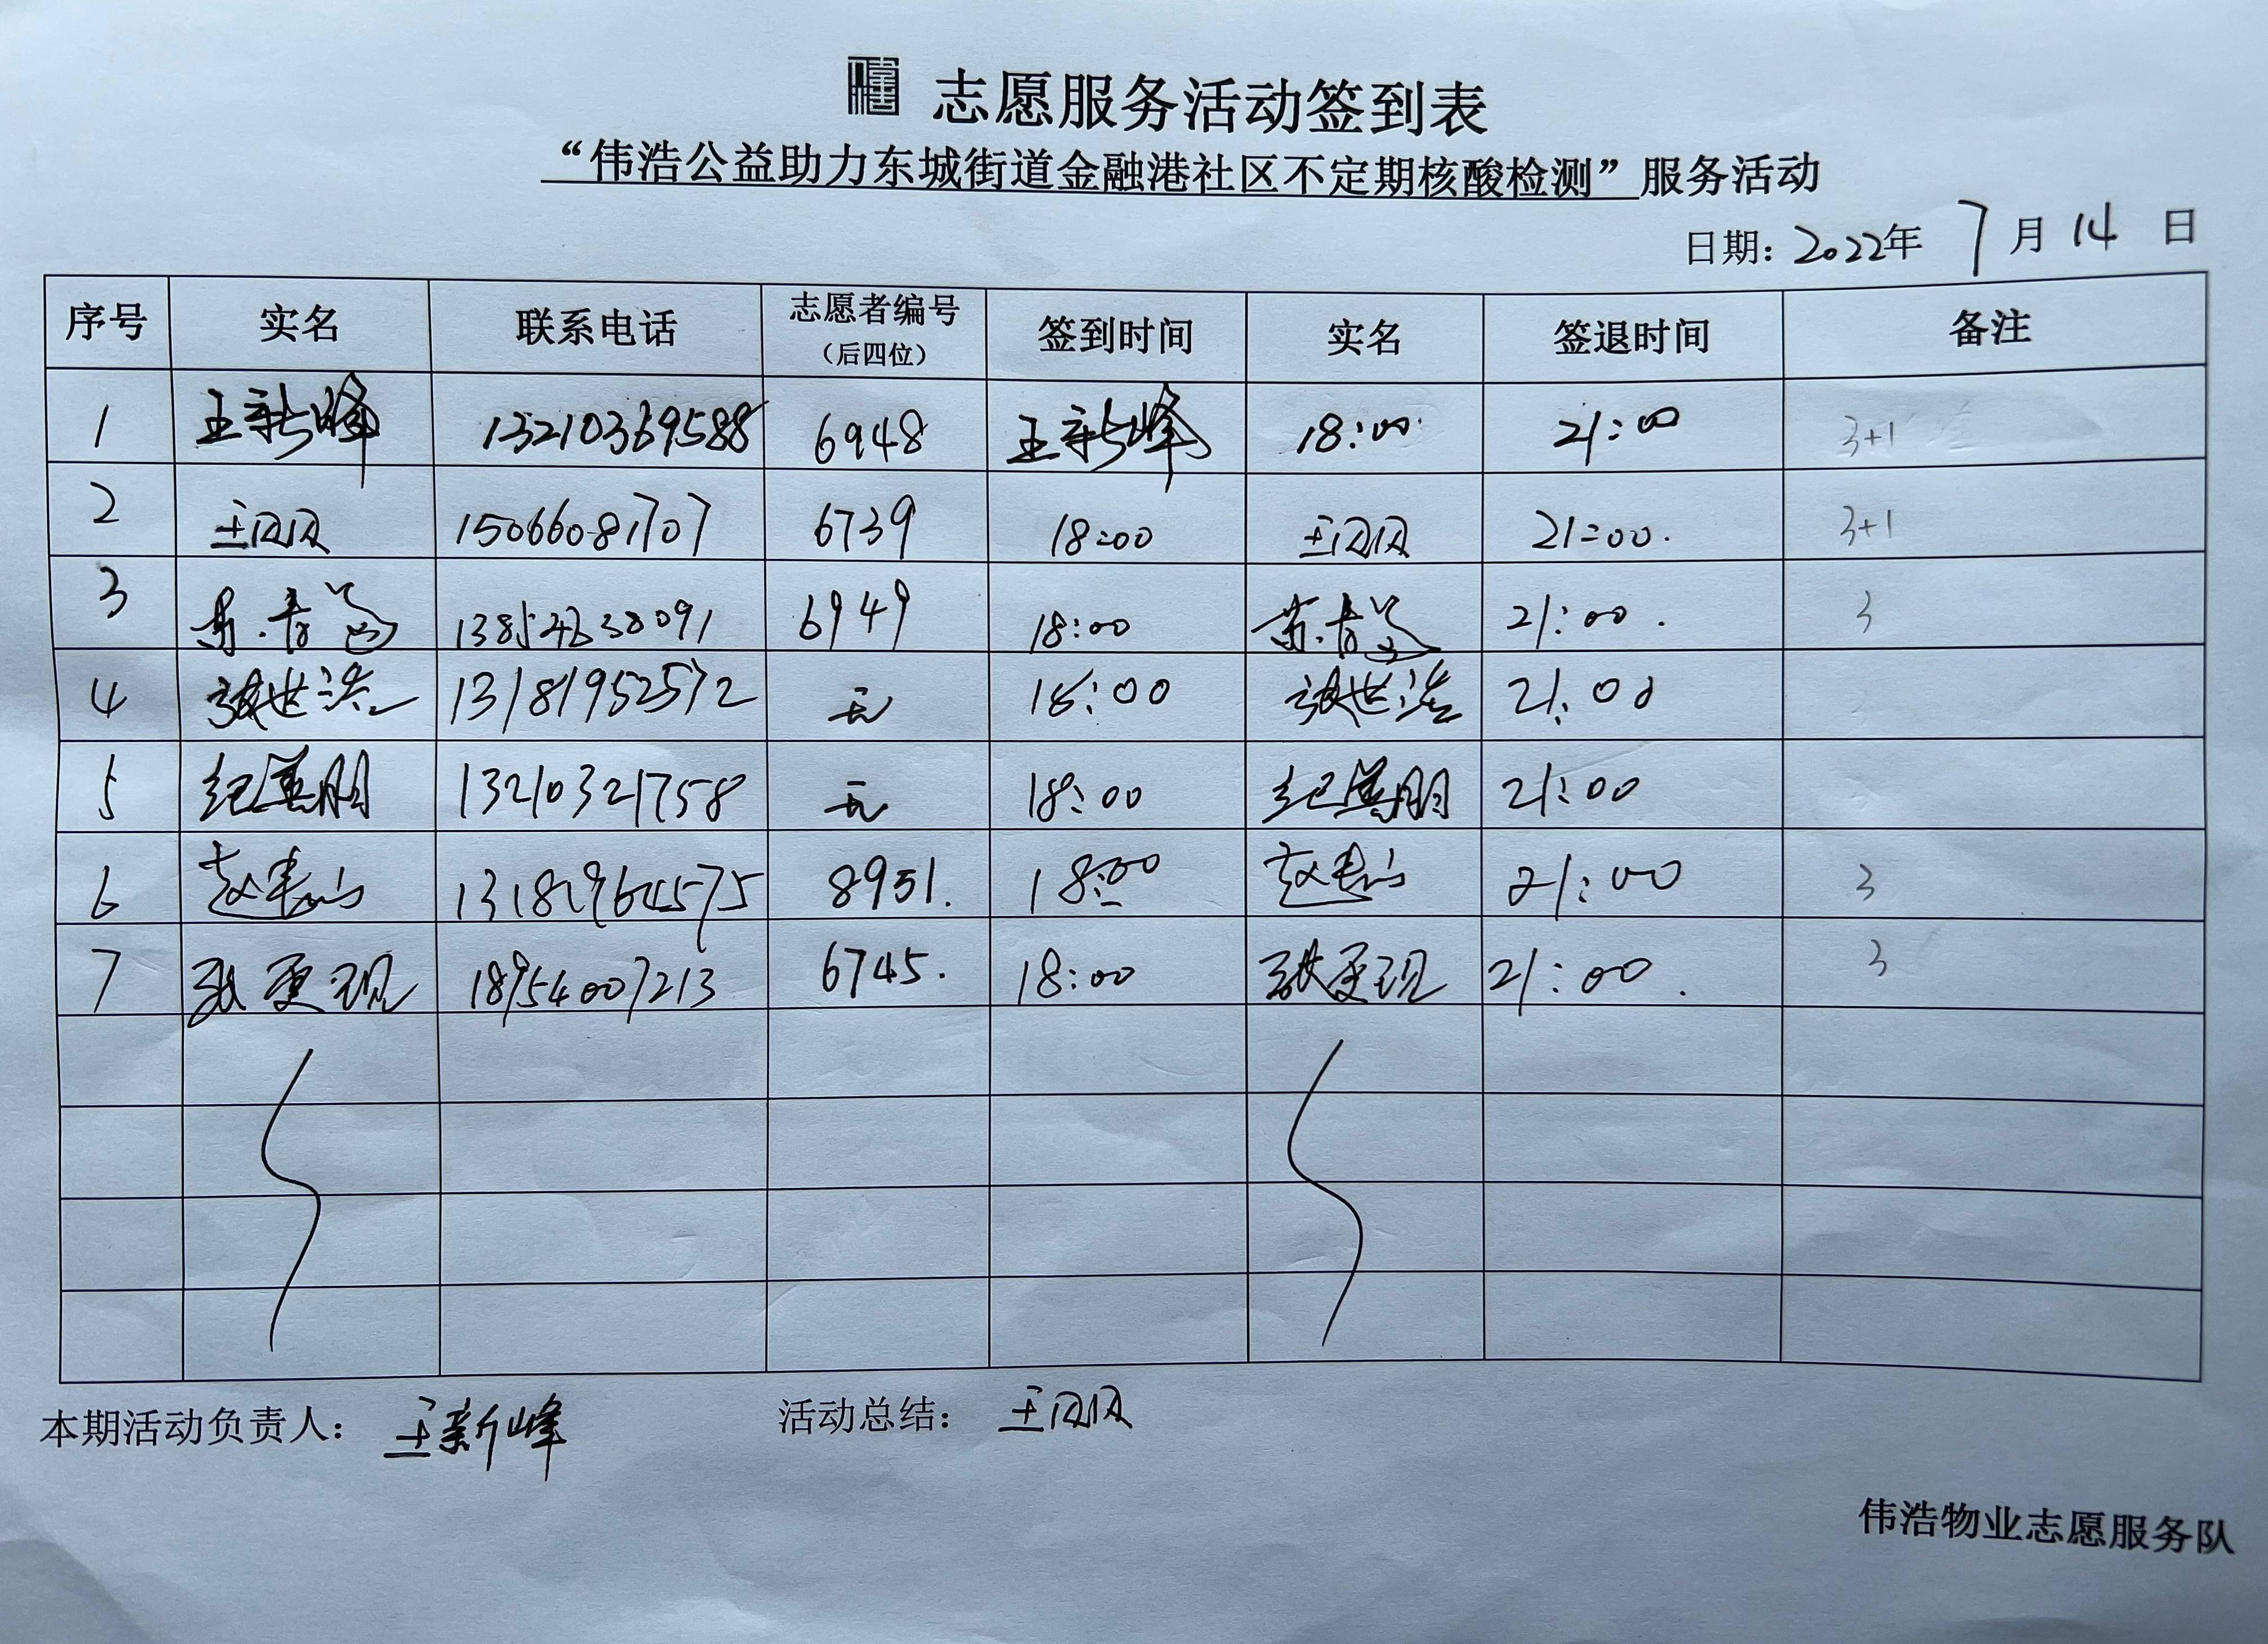 志愿服务活动签到表
“伟浩公益助力东城街道金融港社区不定期核酸检测”服务活动
日期：2022年 7月14日
序号 实名 联系电话 志愿者编号（后四位） 签到时间 实名 签退时间 备注
1 王新峰 13210369588 6948 王新峰 18:00 21:00 3+1
2 15066081707 6739 18:00 21:00. 3+1
3 6949 18:00 21:00. 3
4 张世浩 13181952572 无 18:00 张世浩 21:00
5 13210321758 无 18:00 21:00
6 8951. 18:00 21:00 3
7 张更现 18954007213 6745. 18:00 张更现 21:00. 3
本期活动负责人： 王新峰 活动总结：
伟浩物业志愿服务队